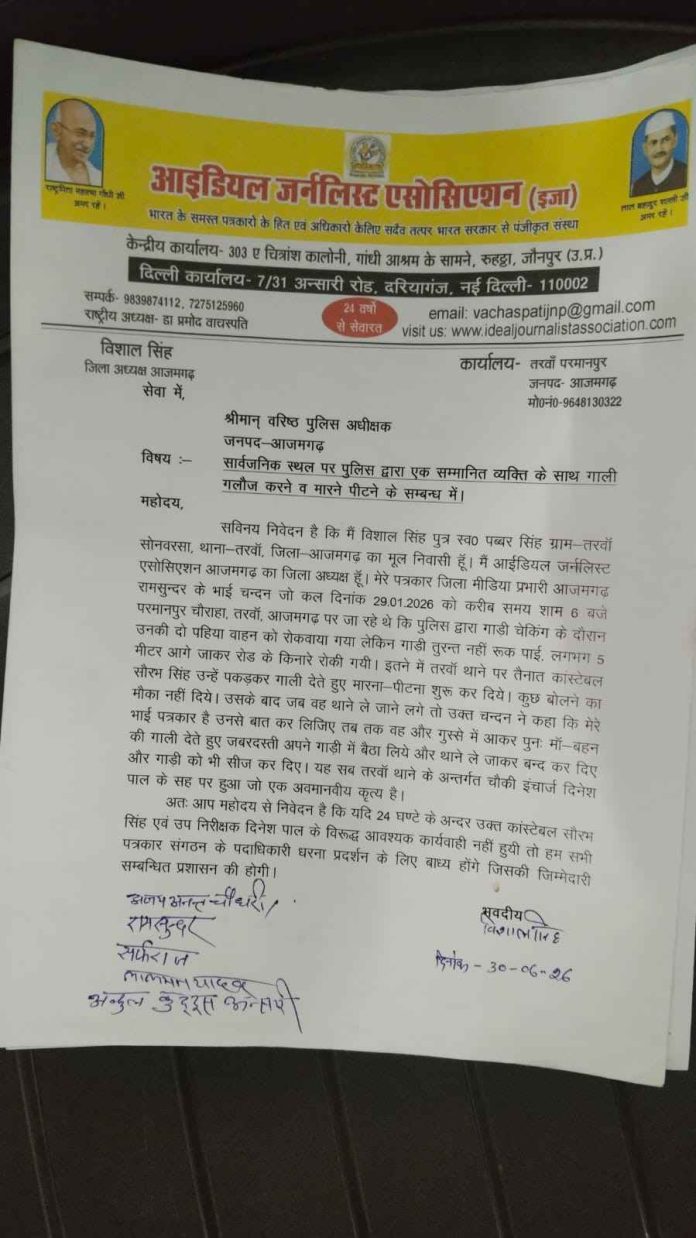 राष्ट्रपिता महात्मा गाँधी जी
अमर रहें।
लाल बहादुर शास्त्री जी
अमर रहें।
आइडियल जर्नलिस्ट एसोसिएशन (इजा)
भारत के समस्त पत्रकारो के हित एवं अधिकारो केलिए सदैव तत्पर भारत सरकार से पंजीकृत संस्था
केन्द्रीय कार्यालय- 303 ए चित्रांश कालोनी, गांधी आश्रम के सामने, रुहट्टा, जौनपुर (उ.प्र.)
दिल्ली कार्यालय- 7/31 अन्सारी रोड, दरियागंज, नई दिल्ली- 110002
सम्पर्क- 9839874112, 7275125960
राष्ट्रीय अध्यक्ष- डा प्रमोद वाचस्पति
24 वर्षो
से सेवारत
email: vachaspatijnp@gmail.com
visit us: www.idealjournalistassociation.com
विशाल सिंह
जिला अध्यक्ष आजमगढ़
कार्यालय- तरवाँ परमानपुर
जनपद- आजमगढ़
मो0नं0-9648130322
सेवा में,
श्रीमान् वरिष्ठ पुलिस अधीक्षक
जनपद–आजमगढ़
विषय :– सार्वजनिक स्थल पर पुलिस द्वारा एक सम्मानित व्यक्ति के साथ गाली
गलौज करने व मारने पीटने के सम्बन्ध में।
महोदय,
सविनय निवेदन है कि मैं विशाल सिंह पुत्र स्व0 पब्बर सिंह ग्राम–तरवाँ
सोनवरसा, थाना–तरवाँ, जिला–आजमगढ़ का मूल निवासी हूँ। मैं आईडियल जर्नलिस्ट
एसोसिएशन आजमगढ़ का जिला अध्यक्ष हूँ। मेरे पत्रकार जिला मीडिया प्रभारी आजमगढ़
रामसुन्दर के भाई चन्दन जो कल दिनांक 29.01.2026 को करीब समय शाम 6 बजे
परमानपुर चौराहा, तरवाँ, आजमगढ़ पर जा रहे थे कि पुलिस द्वारा गाड़ी चेकिंग के दौरान
उनकी दो पहिया वाहन को रोकवाया गया लेकिन गाड़ी तुरन्त नहीं रूक पाई, लगभग 5
मीटर आगे जाकर रोड के किनारे रोकी गयी। इतने में तरवाँ थाने पर तैनात कांस्टेबल
सौरभ सिंह उन्हें पकड़कर गाली देते हुए मारना–पीटना शुरू कर दिये। कुछ बोलने का
मौका नहीं दिये। उसके बाद जब वह थाने ले जाने लगे तो उक्त चन्दन ने कहा कि मेरे
भाई पत्रकार है उनसे बात कर लिजिए तब तक वह और गुस्से में आकर पुनः माँ–बहन
की गाली देते हुए जबरदस्ती अपने गाड़ी में बैठा लिये और थाने ले जाकर बन्द कर दिए
और गाड़ी को भी सीज कर दिए। यह सब तरवाँ थाने के अन्तर्गत चौकी इंचार्ज दिनेश
पाल के सह पर हुआ जो एक अवमानवीय कृत्य है।
अतः आप महोदय से निवेदन है कि यदि 24 घण्टे के अन्दर उक्त कांस्टेबल सौरभ
सिंह एवं उप निरीक्षक दिनेश पाल के विरूद्ध आवश्यक कार्यवाही नहीं हुयी तो हम सभी
पत्रकार संगठन के पदाधिकारी धरना प्रदर्शन के लिए बाध्य होंगे जिसकी जिम्मेदारी
सम्बन्धित प्रशासन की होगी।
अजय अनन्त चौधरी
रामसुन्दर
सर्फराज
लालमन यादव
अब्दुल कुद्दूस अन्सारी
भवदीय
विशाल सिंह
दिनांक - 30-06-26